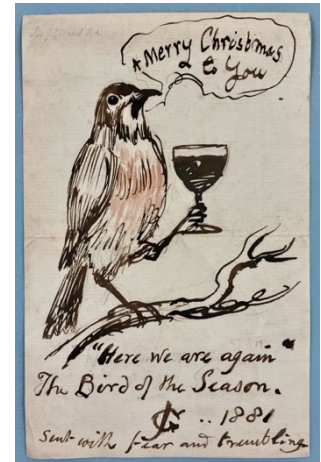 A Merry Christmas
to You
"Here we are again"
The Bird of the Season.
.. 1881
Sent with fear and trembling